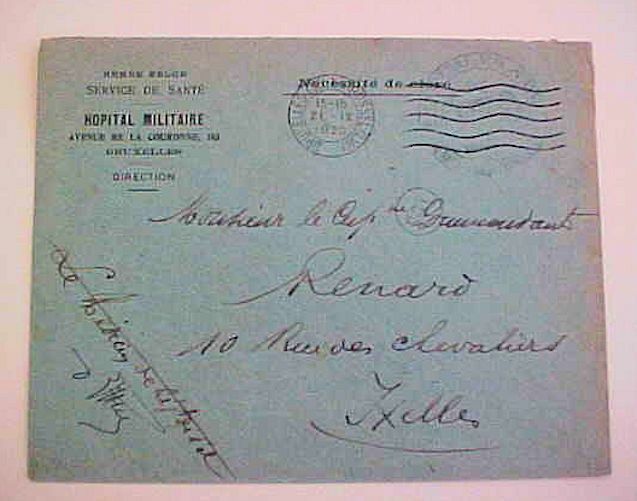 ARMÉE BELGE
SERVICE DE SANTÉ
HOPITAL MILITAIRE
AVENUE DE LA COURONNE, 163
BRUXELLES
DIRECTION
Nécessité de clore
15-16
21-IX
Monsieur le Capne Commandant
Renard
10 Rue des Chevaliers
Ixelles
Le
de